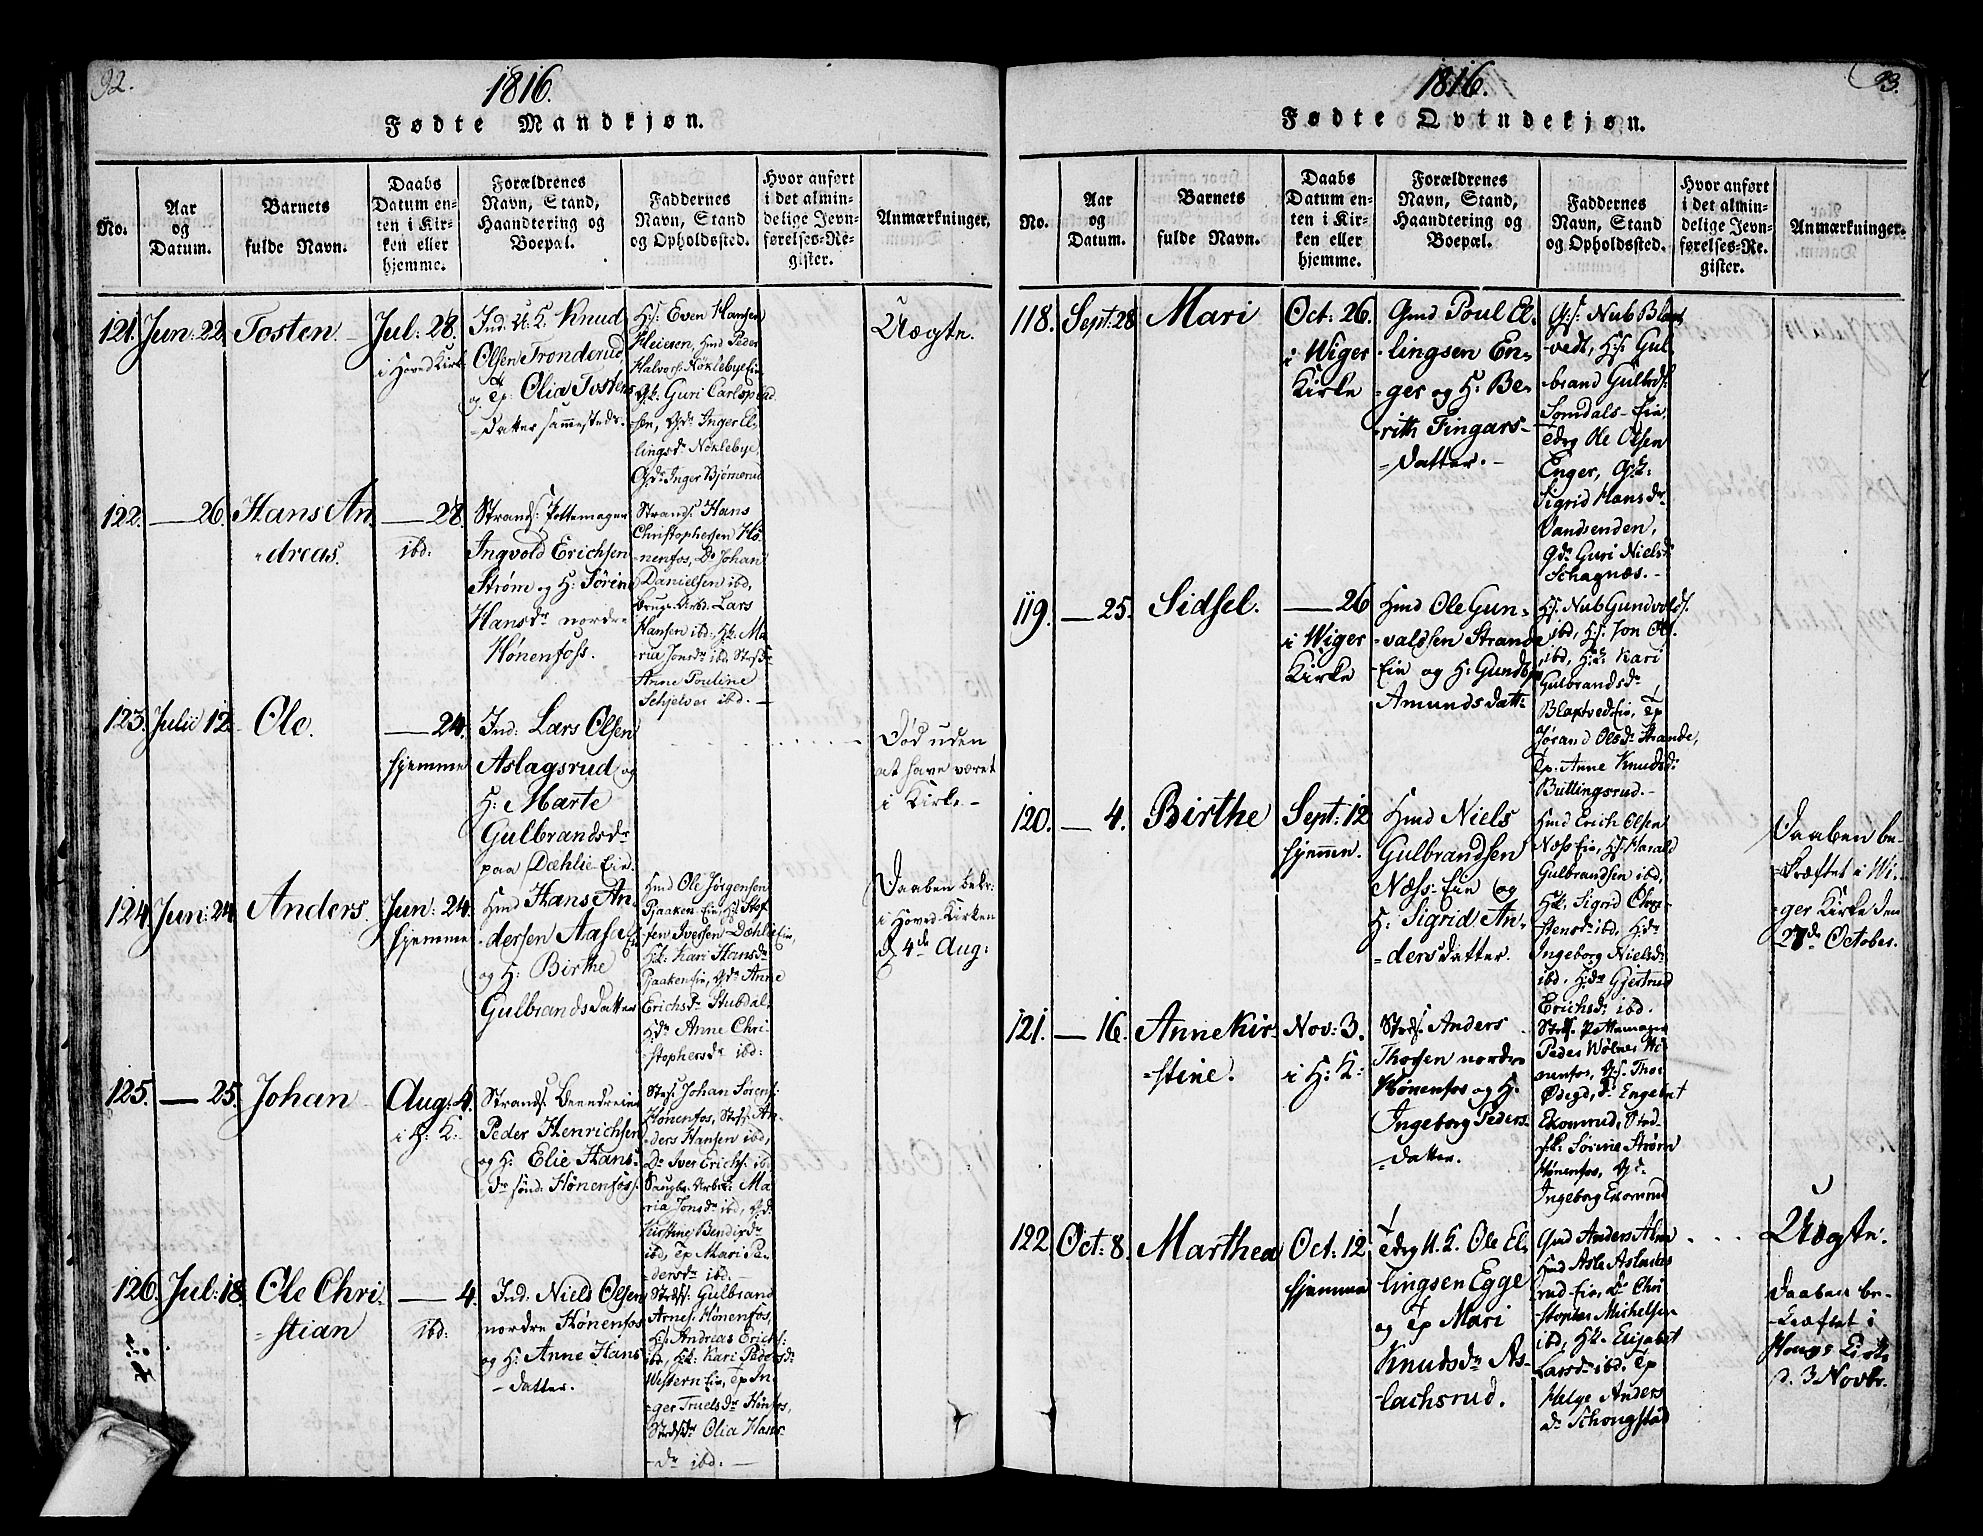 92.
1816.
Fødte Mandkjøn.
No.
Aar
og
Datum.
Barnets
fulde Navn.
Daabs
Datum en-
ten i Kir-
ken eller
hjemme.
Forældrenes
Navn, Stand,
Haandtering og
Boepæl.
Faddernes
Navn, Stand
og Opholdssted.
Hvor anført
i det almin-
delige Jevn-
førelses-Re-
gister.
Anmærkninger.
121. Jun: 22. Tosten. Jul: 28.
i Hoved Kirk
Ind. U. K. Knud
Olsen Tronderud
og Tp. Olia Tostens
Datter sammesteds.
Hs: Even Hansen
Heiesen, Hmd Peder
Halvors: Nøklebye Eie
Gk. Guri Carlsrud
Gdr Inger El-
lingsdr Nøklebye,
Gdr Inger Bjørnerud
Uægte.
122. — 26. Hans An
dreas.
— 28.
ibd:
Strands: Pottemager
Ingvold Erichsen
Strøm og H: Sørine
Hansdr nordre
Hønenfoss.
Strands: Hans
Christophersen Hø-
nenfos, Do Johan
Danielsen ibd,
Brugs-Arbd. Lars
Hansen ibd: Hk: Ma
ria Jonsdr ibd
Anne Pouline
Schjelver ibd. —
123. Julii 12. Ole.
— 24.
hjemme
Ind: Lars Olsen
Aslagsrud og
H: Marte
Gulbrandsdr
paa Dæhlie Eie.
Død uden
at have været
i Kirke —
124. Jun: 24. Anders.
Jun: 24.
hjemme
Hmd Hans An
dersen Aasa Eie
og H: Birthe
Gulbrandsdatter
Hmd Ole Jørgensen
Pjaaken Eie, Hs Stef
fen Iversen Dæhlie Eie,
Hk: Kari Hansdr
Pjaaken Eie, Gdr Anne
Erichsdr Stubdal
Hdr Anne Chri-
stophersdr ibd:
Daaben bekr:
i Hoved Kirken
d. 4de Aug:
125. — 25. Johan
Aug: 4.
i H: K:
Strands: Beendreier
Peder Henrichsen
og H: Elie Hans-
dr sønd: Hønenfoss.
Sts: Johan Sørens:
Hønenfos, Sts: An-
ders Hansen ibd,
Do Iver Erichs: ibd
Saugbr: Arbei: Ma
ria Jonsdr ibd, Gdr
Kirstine Bendixdr
ibd, Tp Mari Pe-
dersdr ibd. —
126. Jul: 18. Ole Chri-
stian
— 4.
ibd:
Ind: Niels Olsen
nordre Hønenfos
og H: Anne Hans
datter.
Strds: Gulbrand
Arnes: Hønenfos,
Hs: Andreas Erichs:
ibd, Hk: Kari Pedersdr
Western Eie, Tp In-
ger Truelsdr Hønfos,
Strdsdr Olia Hans
dr ibd: —
93.
1816.
Fødte Qvindekjøn.
No.
Aar
og
Datum.
Barnets
fulde Navn.
Daabs
Datum en-
ten i Kir-
ken eller
hjemme.
Forældrenes
Navn, Stand,
Haandtering og
Boepæl.
Faddernes
Navn, Stand
og Opholdssted.
Hvor anført
i det almin-
delige Jevn-
førelses-Re-
gister.
Anmærkninger.
118. Sept: 28 Mari
Oct: 26.
i Wiger
Kirke
Gmd Poul El-
lingsen En-
ger og H: Be-
rith Fingars-
datter. —
Gs: Nub Blaxt
vedt, Hs: Gul
brand Gulbrds:
Somdals-Eie,
Tdrg Ole Olsen
Enger, Gk:
Sigrid Hansdr
Vandsenden,
Gdr Guri Nielsdr
Schagnæs. —
119. — 25. Sidsel.
— 26
i Wiger
Kirke
Hmd Ole Gun-
valdsen Strande
Eie og H: Gunbjør
Amundsdatt:
Hs: Nub Gundvolds:
ibd, Hs: Jon Ols:
ibd, Hk: Kari
Gulbrandsdr
Blaxtved Eie, Tp
Jørand Olsdr Strande,
Tp: Anne Knudsdr
Bullingsrud. —
120. — 4. Birthe
Sept: 12
hjemme.
Hmd Niels
Gulbrandsen
Næss-Eie og
H: Sigrid An-
dersdatter.
Hmd Erich Olsen
Næss Eie, Hs: Harald
Gulbrandsen ibd,
Hk: Sigrid
ibd, Hdr
Ingeborg Nielsdr
ibd. Hdr Gjertrud
Erichsdr ibd.
Daaben be-
kræftet i Wi-
ger Kirke den
27de October.
121. — 16. Anne Kir-
stine.
Nov: 3.
i H: K:
Strds: Anders
Thorsen nordre
Hønenfos og H:
Ingeborg Peders-
datter.
Strds: Pottemager
Peder Wølner Hø-
nenfos, Gs: Thor
Ødegd, do Engebret
Ekornrud, Strd-
fk: Sørine Strøm
Hønenfos, Gdr.
Ingeborg Ekornrud
122 Oct: 8. Marthea
Oct: 12
hjemme
Tdrg U. K. Ole El-
lingsen Egge
og Tp Mari
Knudsdr As-
lachsrud.
Gmd Anders Alme
Hmd Asle Aslachs
rud-Eie, Do Chri
stopher Michelsen
ibd, Hk. Elisabet
Larsdr ibd: Tp
Helge Anders
dr Schougstad
Uægte.
Daaben be-
kræftet i
Hougs Kirke
d. 3 Novbr.